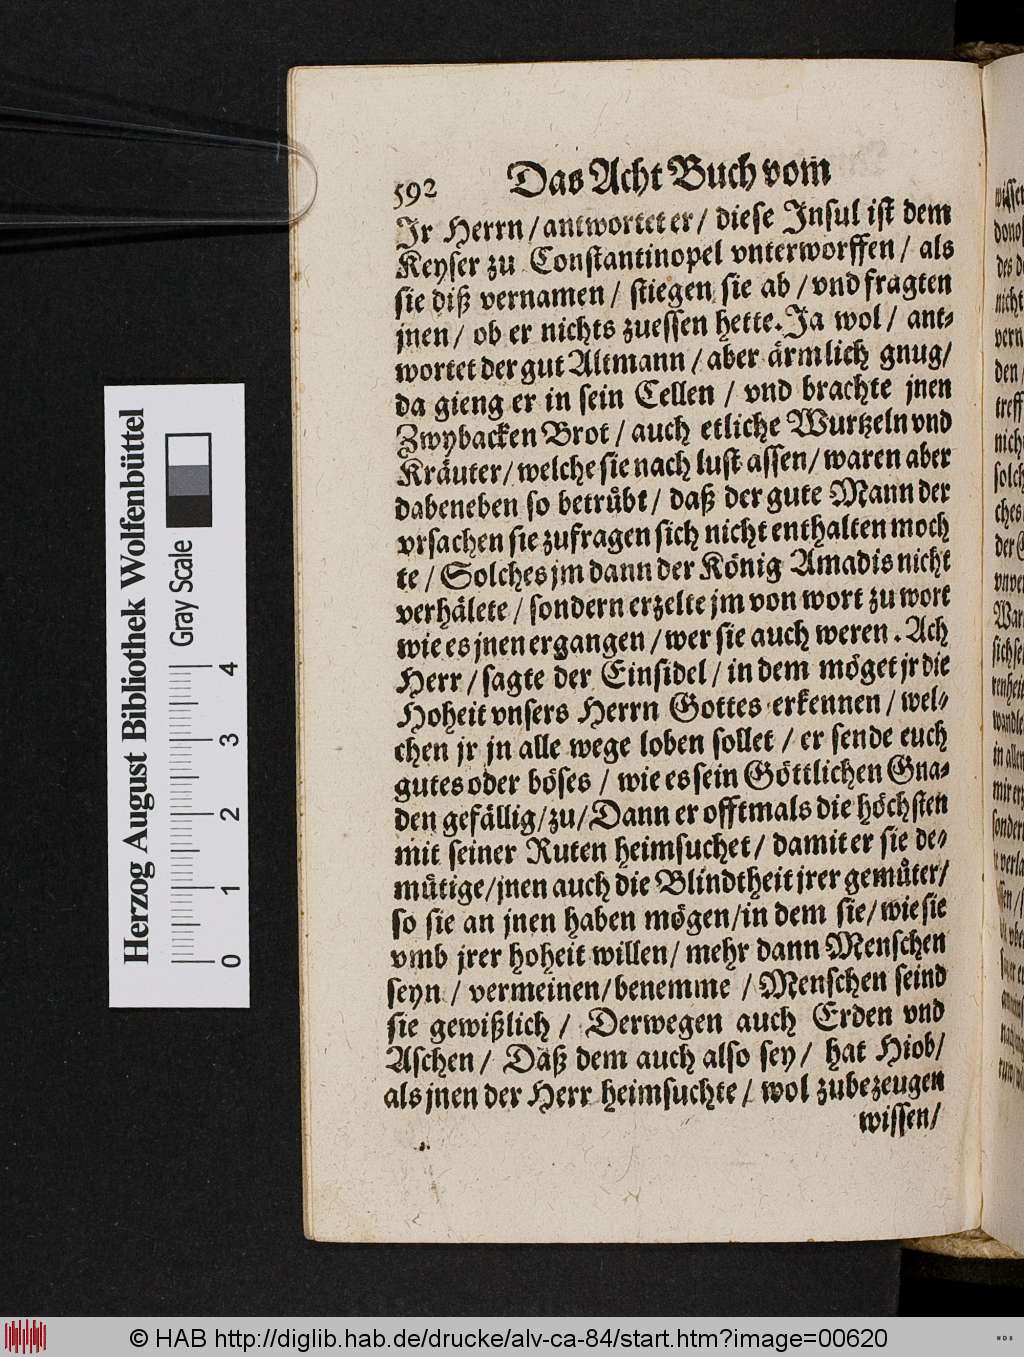 592 Das Acht Buch vom
Jr Herrn / antwortet er / diese Insul ist dem
Keyser zu Constantinopel vnterworffen / als
sie diß vernamen / stiegen sie ab / vnd fragten
jnen / ob er nichts zuessen hette. Ja wol / ant-
wortet der gut Altmann / aber ärmlich gnug /
da gieng er in sein Cellen / vnd brachte jnen
Zwybacken Brot / auch etliche Wurtzeln vnd
Kräuter / welche sie nach lust assen / waren aber
dabeneben so betrübt / daß der gute Mann der
vrsachen sie zufragen sich nicht enthalten moch
te / Solches jm dann der König Amadis nicht
verhälete / sondern erzelte jm von wort zu wort
wie es jnen ergangen / wer sie auch weren. Ach
Herr / sagte der Einsidel / in dem möget jr die
Hoheit vnsers Herrn Gottes erkennen / wel-
chen jr jn alle wege loben sollet / er sende euch
gutes oder böses / wie es sein Göttlichen Gna-
den gefällig / zu / Dann er offtmals die höchsten
mit seiner Ruten heimsuchet / damit er sie de-
mütige / jnen auch die Blindtheit jrer gemüter /
so sie an jnen haben mögen / in dem sie / wie sie
vmb jrer hoheit willen / mehr dann Menschen
seyn / vermeinen / benemme / Menschen seind
sie gewißlich / Derwegen auch Erden vnd
Aschen / Däß dem auch also sey / hat Hiob /
als jnen der Herr heimsuchte / wol zubezeugen
wissen /
Herzog August Bibliothek Wolfenbüttel
Gray Scale
0 1 2 3 4
© HAB http://diglib.hab.de/drucke/alv-ca-84/start.htm?image=00620